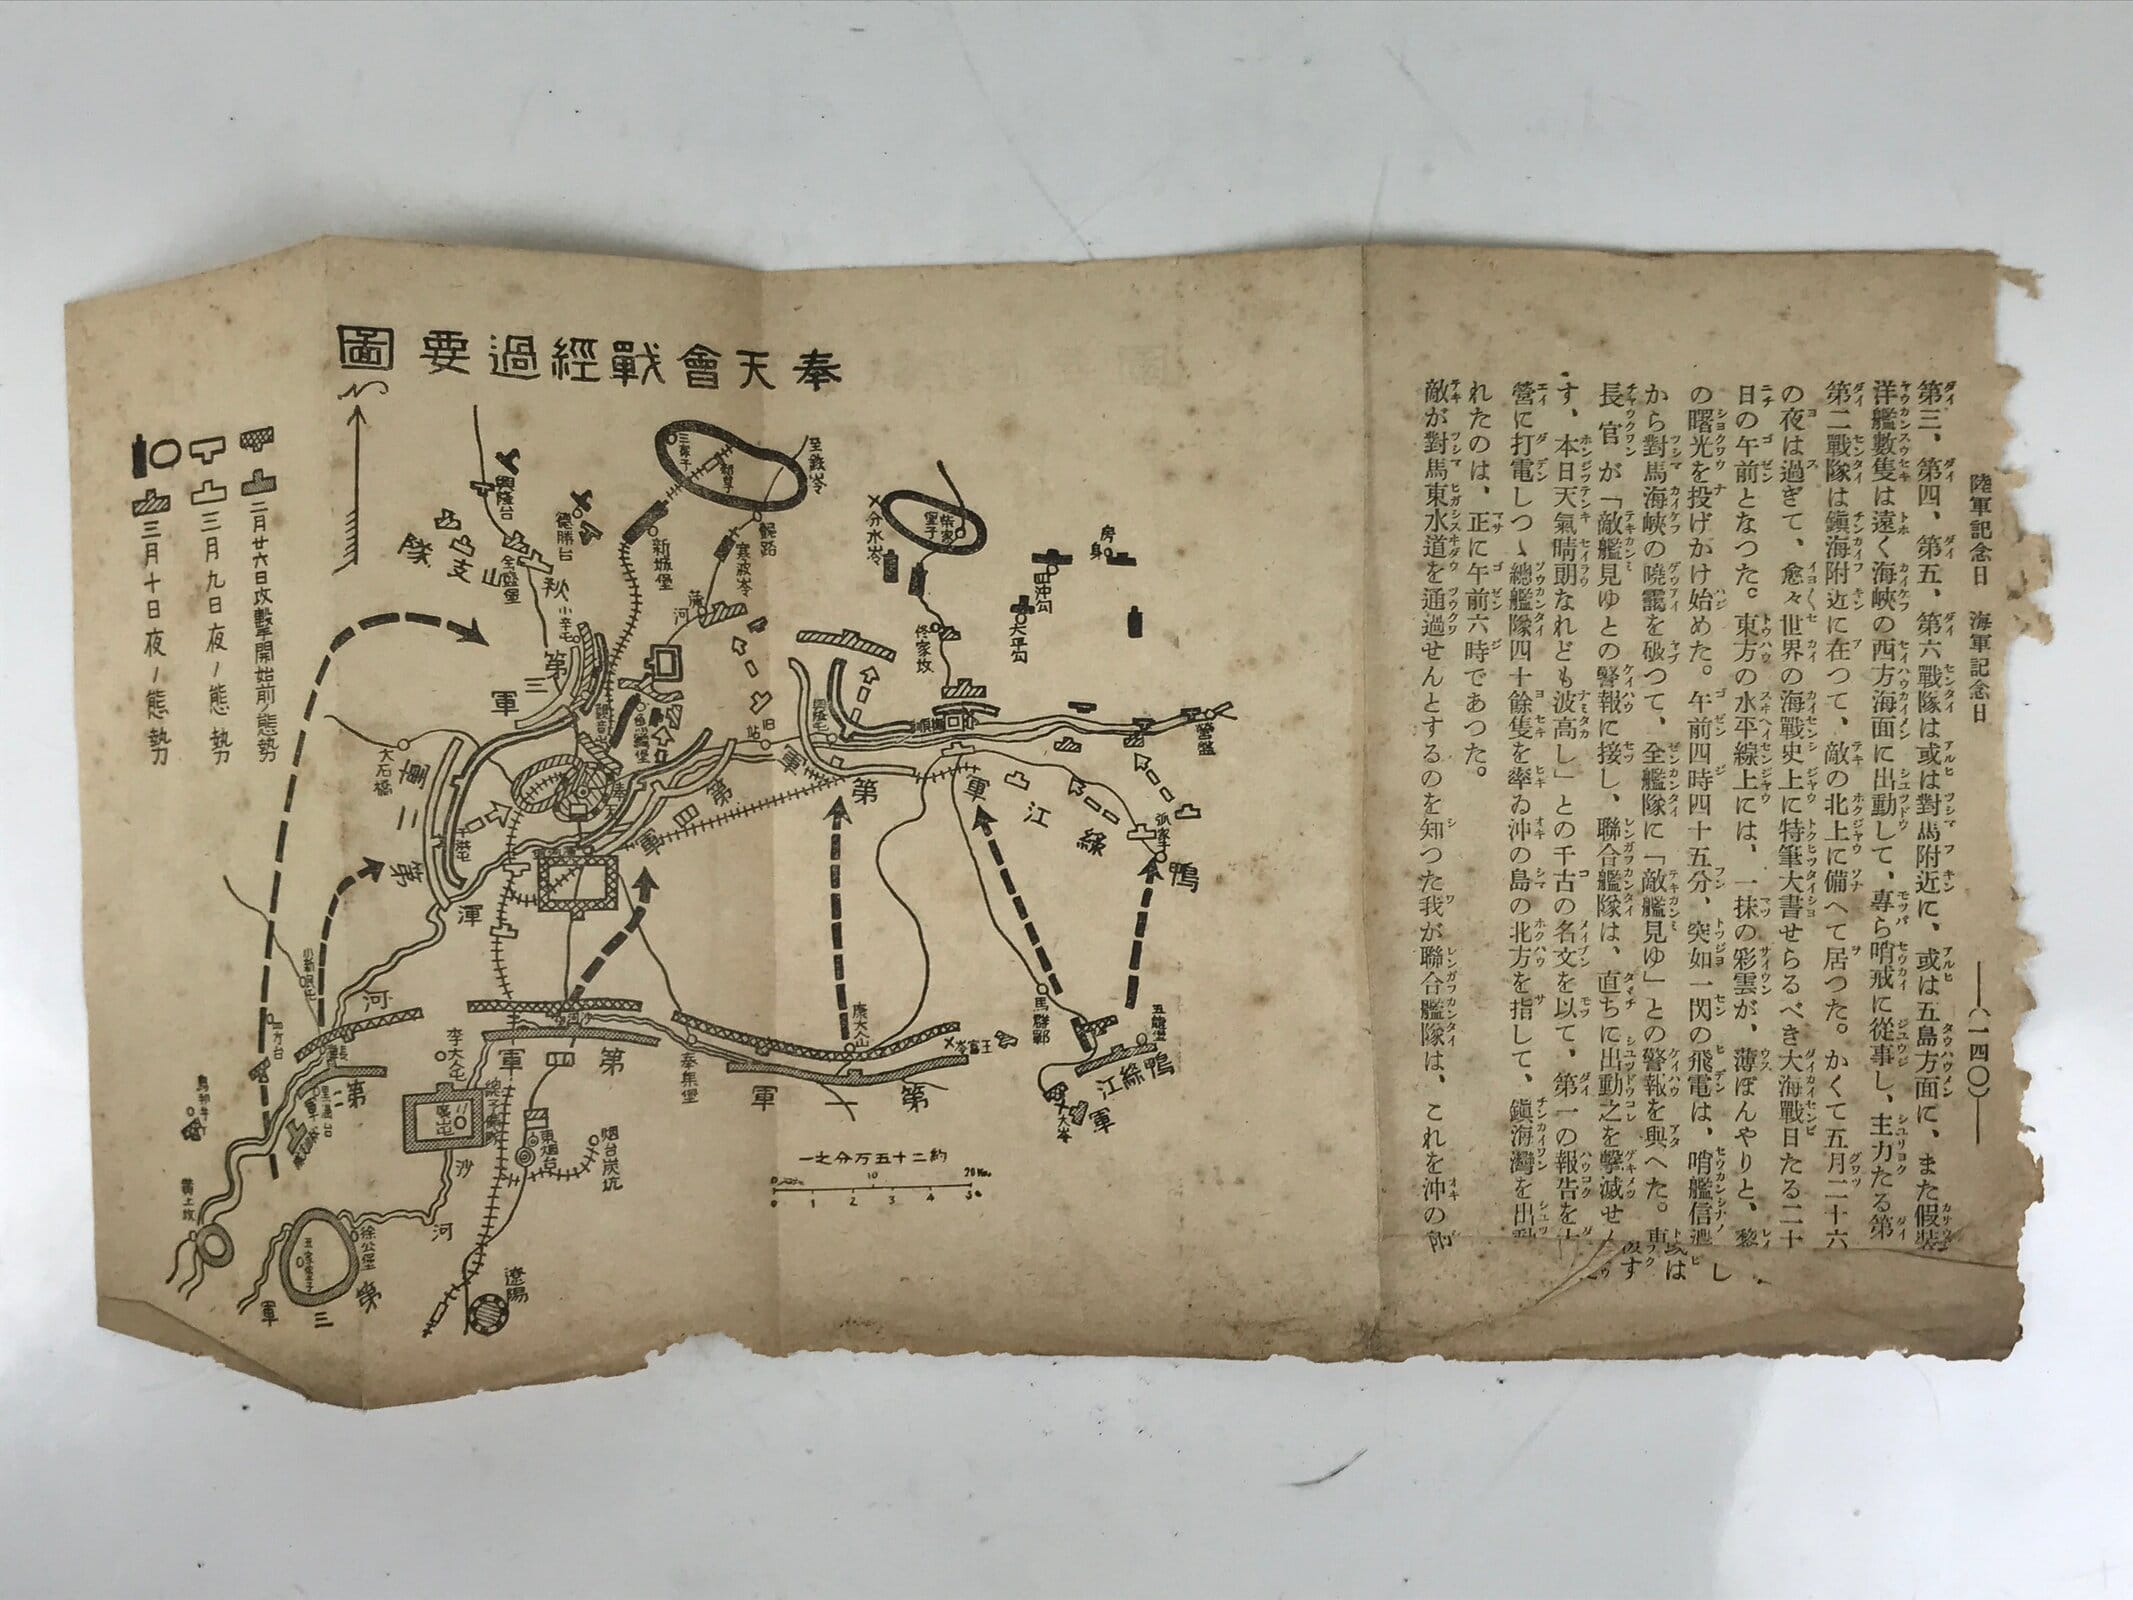 陸軍記念日 海軍記念日 ――(一四〇)――
第三、第四、第五、第六戰隊は或は對馬附近に、或は五島方面に、また假裝
洋艦數隻は遠く海峽の西方海面に出動して、專ら哨戒に從事し、主力たる第
第二戰隊は鎭海附近に在つて、敵の北上に備へて居つた。かくて五月二十六
の夜は過ぎて、愈々世界の海戰史上に特筆大書せらるべき大海戰日たる二十
日の午前となつた。東方の水平線上には、一抹の彩雲が、薄ぼんやりと、黎
の曙光を投げかけ始めた。午前四時四十五分、突如一閃の飛電は、哨艦信濃
から對馬海峽の曉靄を破つて、全艦隊に「敵艦見ゆ」との警報を與へた。東
長官が「敵艦見ゆとの警報に接し、聯合艦隊は、直ちに出動之を擊滅せん
す、本日天氣晴朗なれども波高し」との千古の名文を以て、第一の報告を大
營に打電しつゝ總艦隊四十餘隻を率ゐ沖の島の北方を指して、鎭海灣を出動
れたのは、正に午前六時であつた。
敵が對馬東水道を通過せんとするのを知つた我が聯合艦隊は、これを沖の
奉天會戰經過要圖
二月廿六日攻擊開始前ノ態勢
三月九日夜ノ態勢
三月十日夜ノ態勢
至鐵嶺
三家子
興隆台
德勝台
新城堡
寒波嶺
分水嶺
柴家堡子
房身
四沖勾
大平勾
佟家坟
蒲河
全盛堡
小辛屯
秋山支隊
第三軍
大石橋
第二軍
旧站
第四軍
第一軍
鴨綠江軍
撫順
營盤
渾河
馬群鄲
五龍堡
康大山
王富嶺
奉集堡
沙河
李大屯
第四軍
第一軍
鴨綠江軍
第二軍
四方台
黃土坎
徐公堡
第三軍
東烟台
烟台炭坑
遼陽
約二十五万分之一
0 10 20 Km.
0 1 2 3 4 5